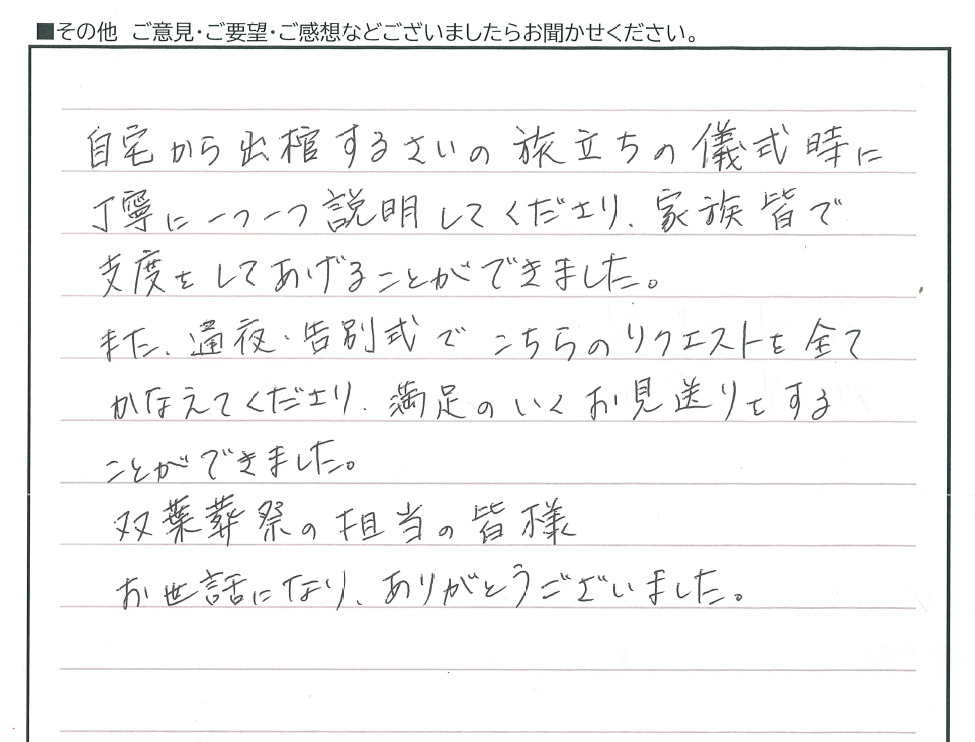 ■その他 ご意見・ご要望・ご感想などございましたらお聞かせください。
自宅から出棺するさいの旅立ちの儀式時に
丁寧に一つ一つ説明してくださり、家族皆で
支度をしてあげることができました。
また、通夜・告別式でこちらのリクエストを全て
かなえてくださり、満足のいくお見送りをする
ことができました。
双葉葬祭の担当の皆様
お世話になり、ありがとうございました。